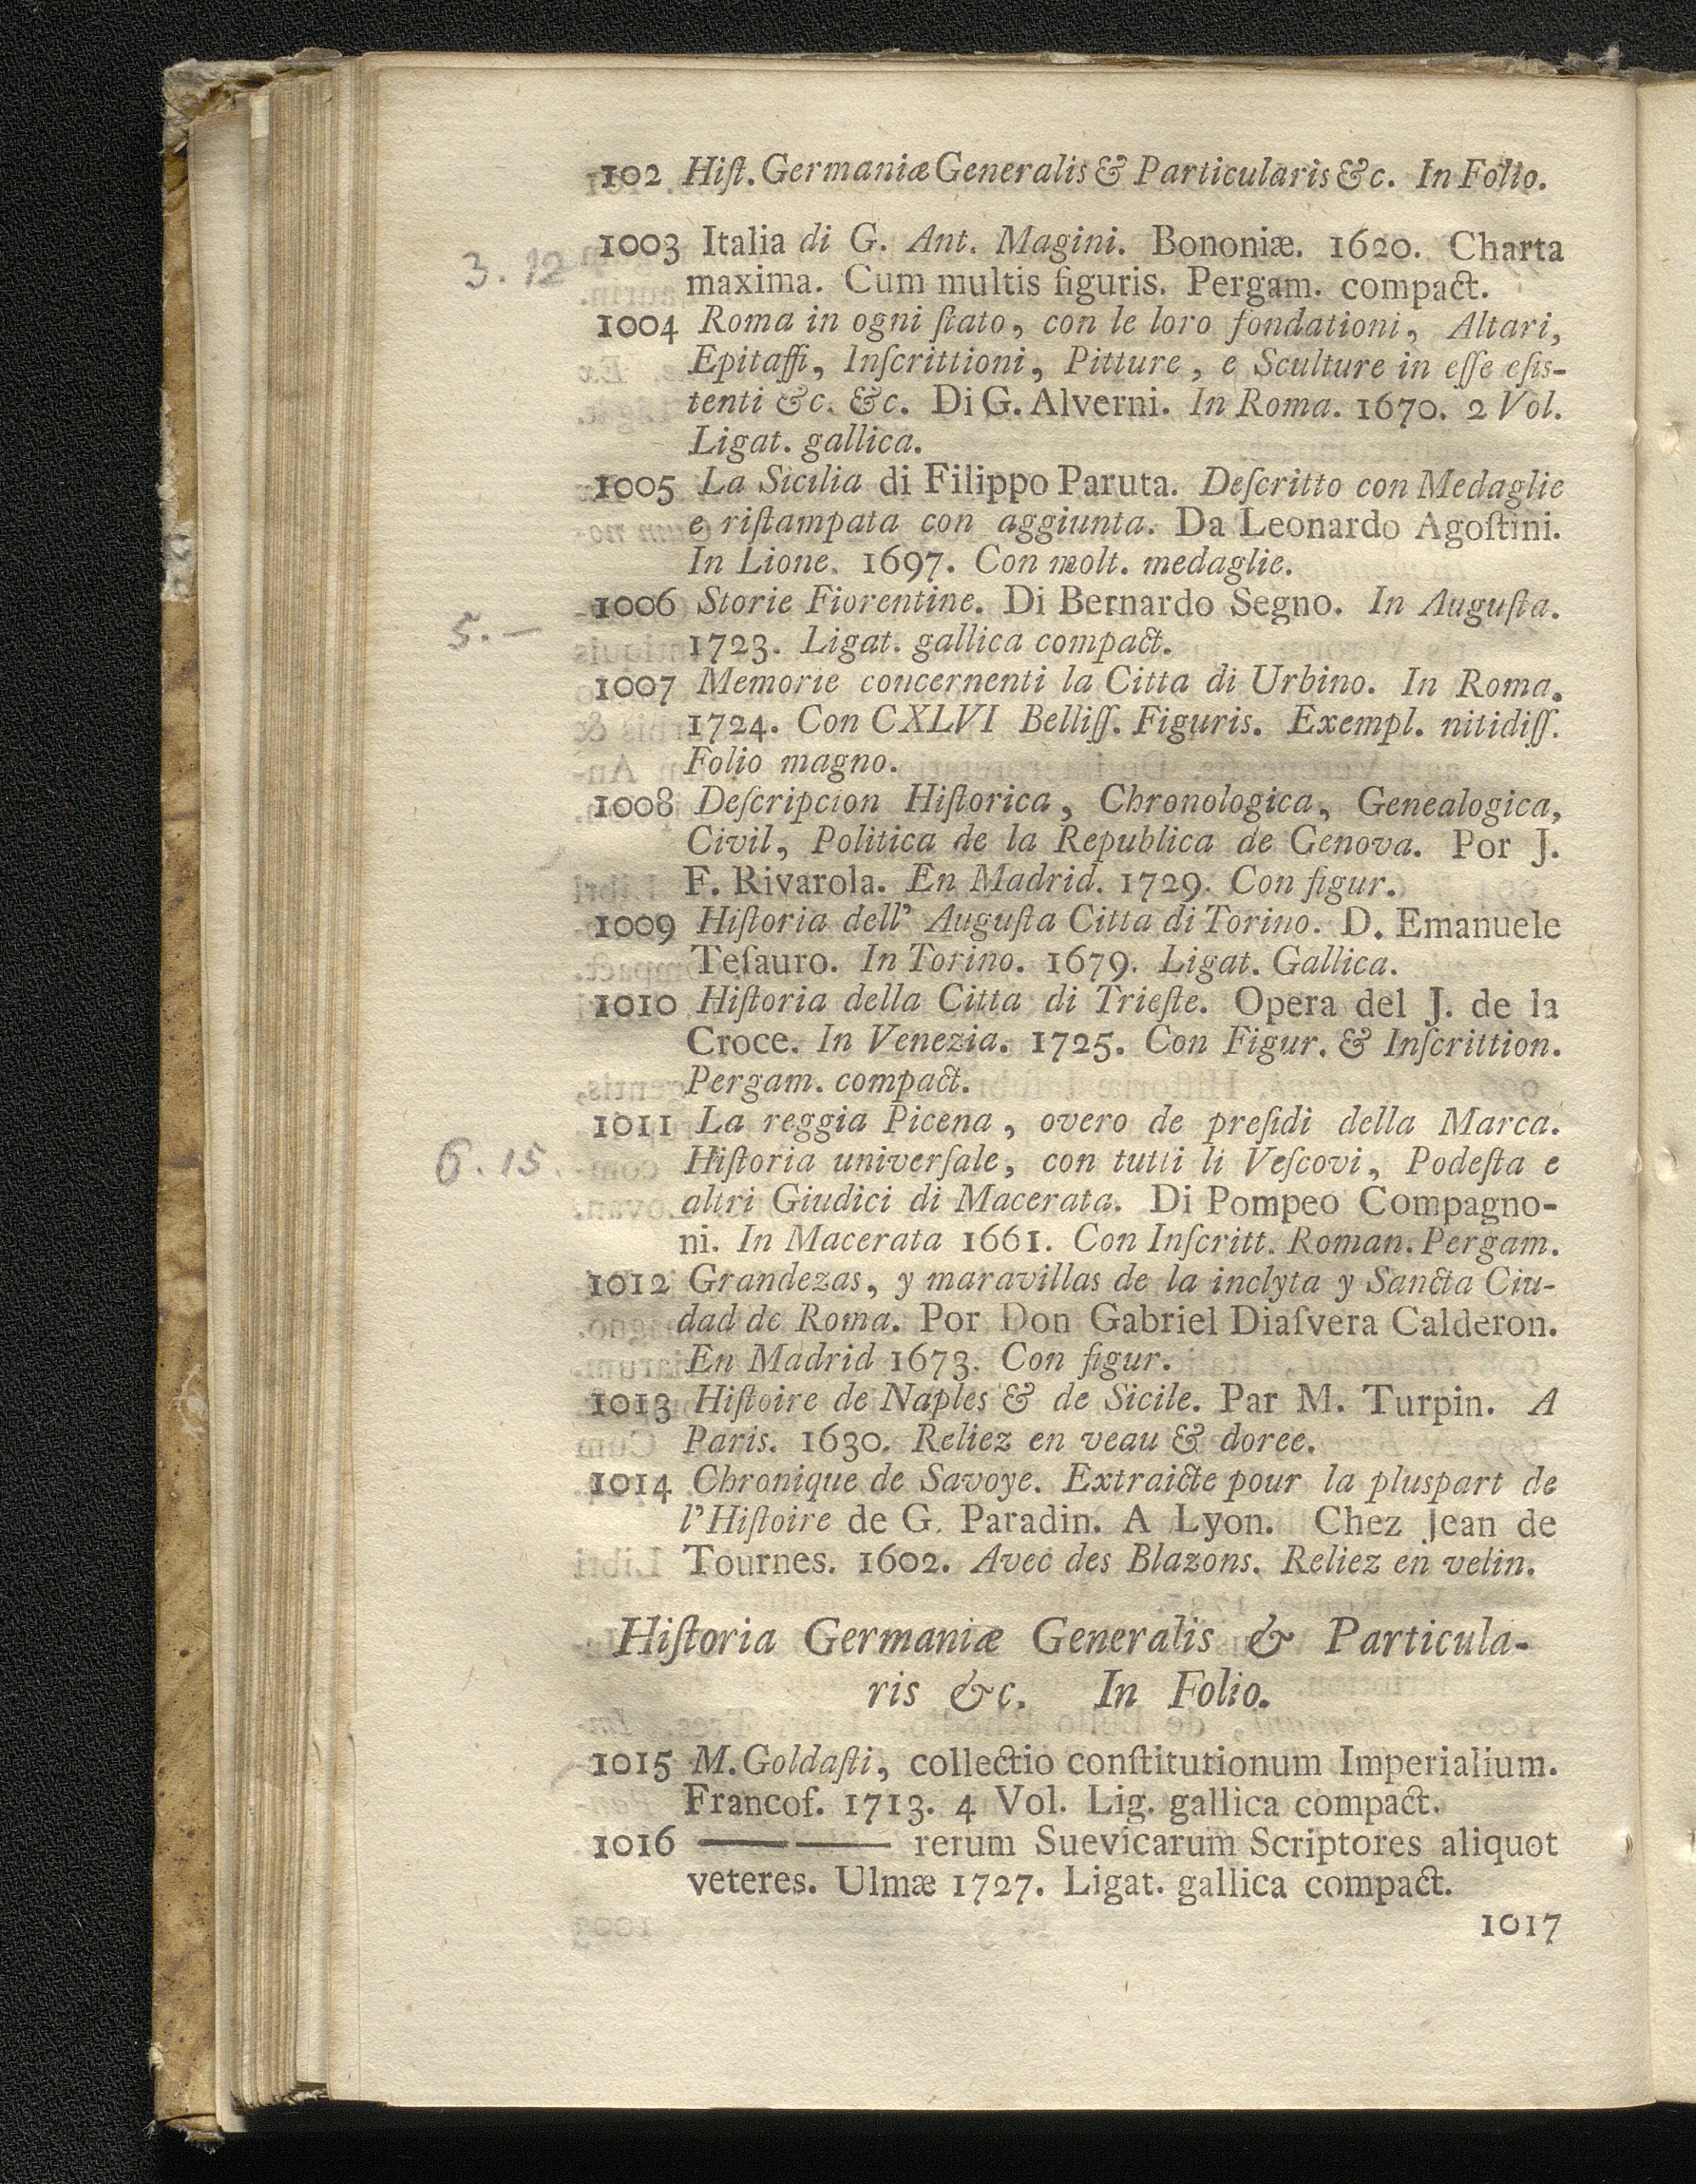 102 Hiſt. Germaniæ Generalis & Particularis &c. In Folio.
3. 12
1003 Italia di G. Ant. Magini. Bononiæ. 1620. Charta
maxima. Cum multis figuris. Pergam. compact.
1004 Roma in ogni ſtato, con le loro fondationi, Altari,
Epitaffi, Inſcrittioni, Pitture, e Sculture in eſſe eſis-
tenti &c. &c. Di G. Alverni. In Roma. 1670. 2 Vol.
Ligat. gallica.
1005 La Sicilia di Filippo Paruta. Deſcritto con Medaglie
e riſtampata con aggiunta. Da Leonardo Agoſtini.
In Lione. 1697. Con molt. medaglie.
5. —
1006 Storie Fiorentine. Di Bernardo Segno. In Auguſta.
1723. Ligat. gallica compact.
1007 Memorie concernenti la Citta di Urbino. In Roma.
1724. Con CXLVI Belliſſ. Figuris. Exempl. nitidiſſ.
Folio magno.
1008 Deſcripcion Hiſtorica, Chronologica, Genealogica,
Civil, Politica de la Republica de Genova. Por J.
F. Rivarola. En Madrid. 1729. Con figur.
1009 Hiſtoria dell' Auguſta Citta di Torino. D. Emanuele
Teſauro. In Torino. 1679. Ligat. Gallica.
1010 Hiſtoria della Citta di Trieſte. Opera del J. de la
Croce. In Venezia. 1725. Con Figur. & Inſcrittion.
Pergam. compact.
6. 15.
1011 La reggia Picena, overo de preſidi della Marca.
Hiſtoria univerſale, con tutti li Veſcovi, Podeſta e
altri Giudici di Macerata. Di Pompeo Compagno-
ni. In Macerata 1661. Con Inſcritt. Roman. Pergam.
1012 Grandezas, y maravillas de la inclyta y Sancta Ciu-
dad de Roma. Por Don Gabriel Diaſvera Calderon.
En Madrid 1673. Con figur.
1013 Hiſtoire de Naples & de Sicile. Par M. Turpin. A
Paris. 1630. Reliez en veau & doree.
1014 Chronique de Savoye. Extraicte pour la pluspart de
l'Hiſtoire de G. Paradin. A Lyon. Chez Jean de
Tournes. 1602. Avec des Blazons. Reliez en velin.
Hiſtoria Germaniæ Generalis & Particula-
ris &c. In Folio.
1015 M. Goldaſti, collectio conſtitutionum Imperialium.
Francof. 1713. 4 Vol. Lig. gallica compact.
1016 —— —— rerum Suevicarum Scriptores aliquot
veteres. Ulmæ 1727. Ligat. gallica compact.
1017